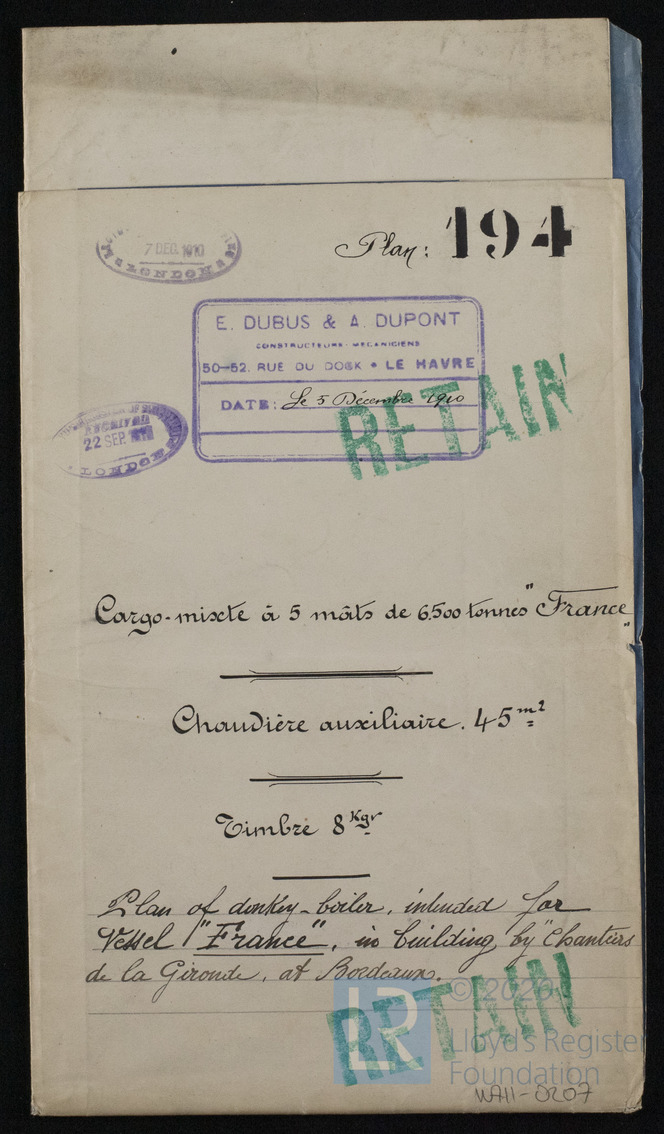 7 DEC. 1910
LONDON
Plan: 194
E. DUBUS & A. DUPONT
CONSTRUCTEURS-MECANICIENS
50-52. RUE DU DOCK • LE HAVRE
DATE: Le 5 Décembre 1910
RETAIN
22 SEP.
LONDON
Cargo-mixte à 5 mâts de 6500 tonnes "France"
Chaudière auxiliaire. 45 m2
Timbre 8 Kgr
Plan of donkey-boiler, intended for
Vessel "France", in building, by "Chantiers
de la Gironde, at Bordeaux.
RETAIN
© 2026
LR Lloyd's Register
Foundation
WA11-0207